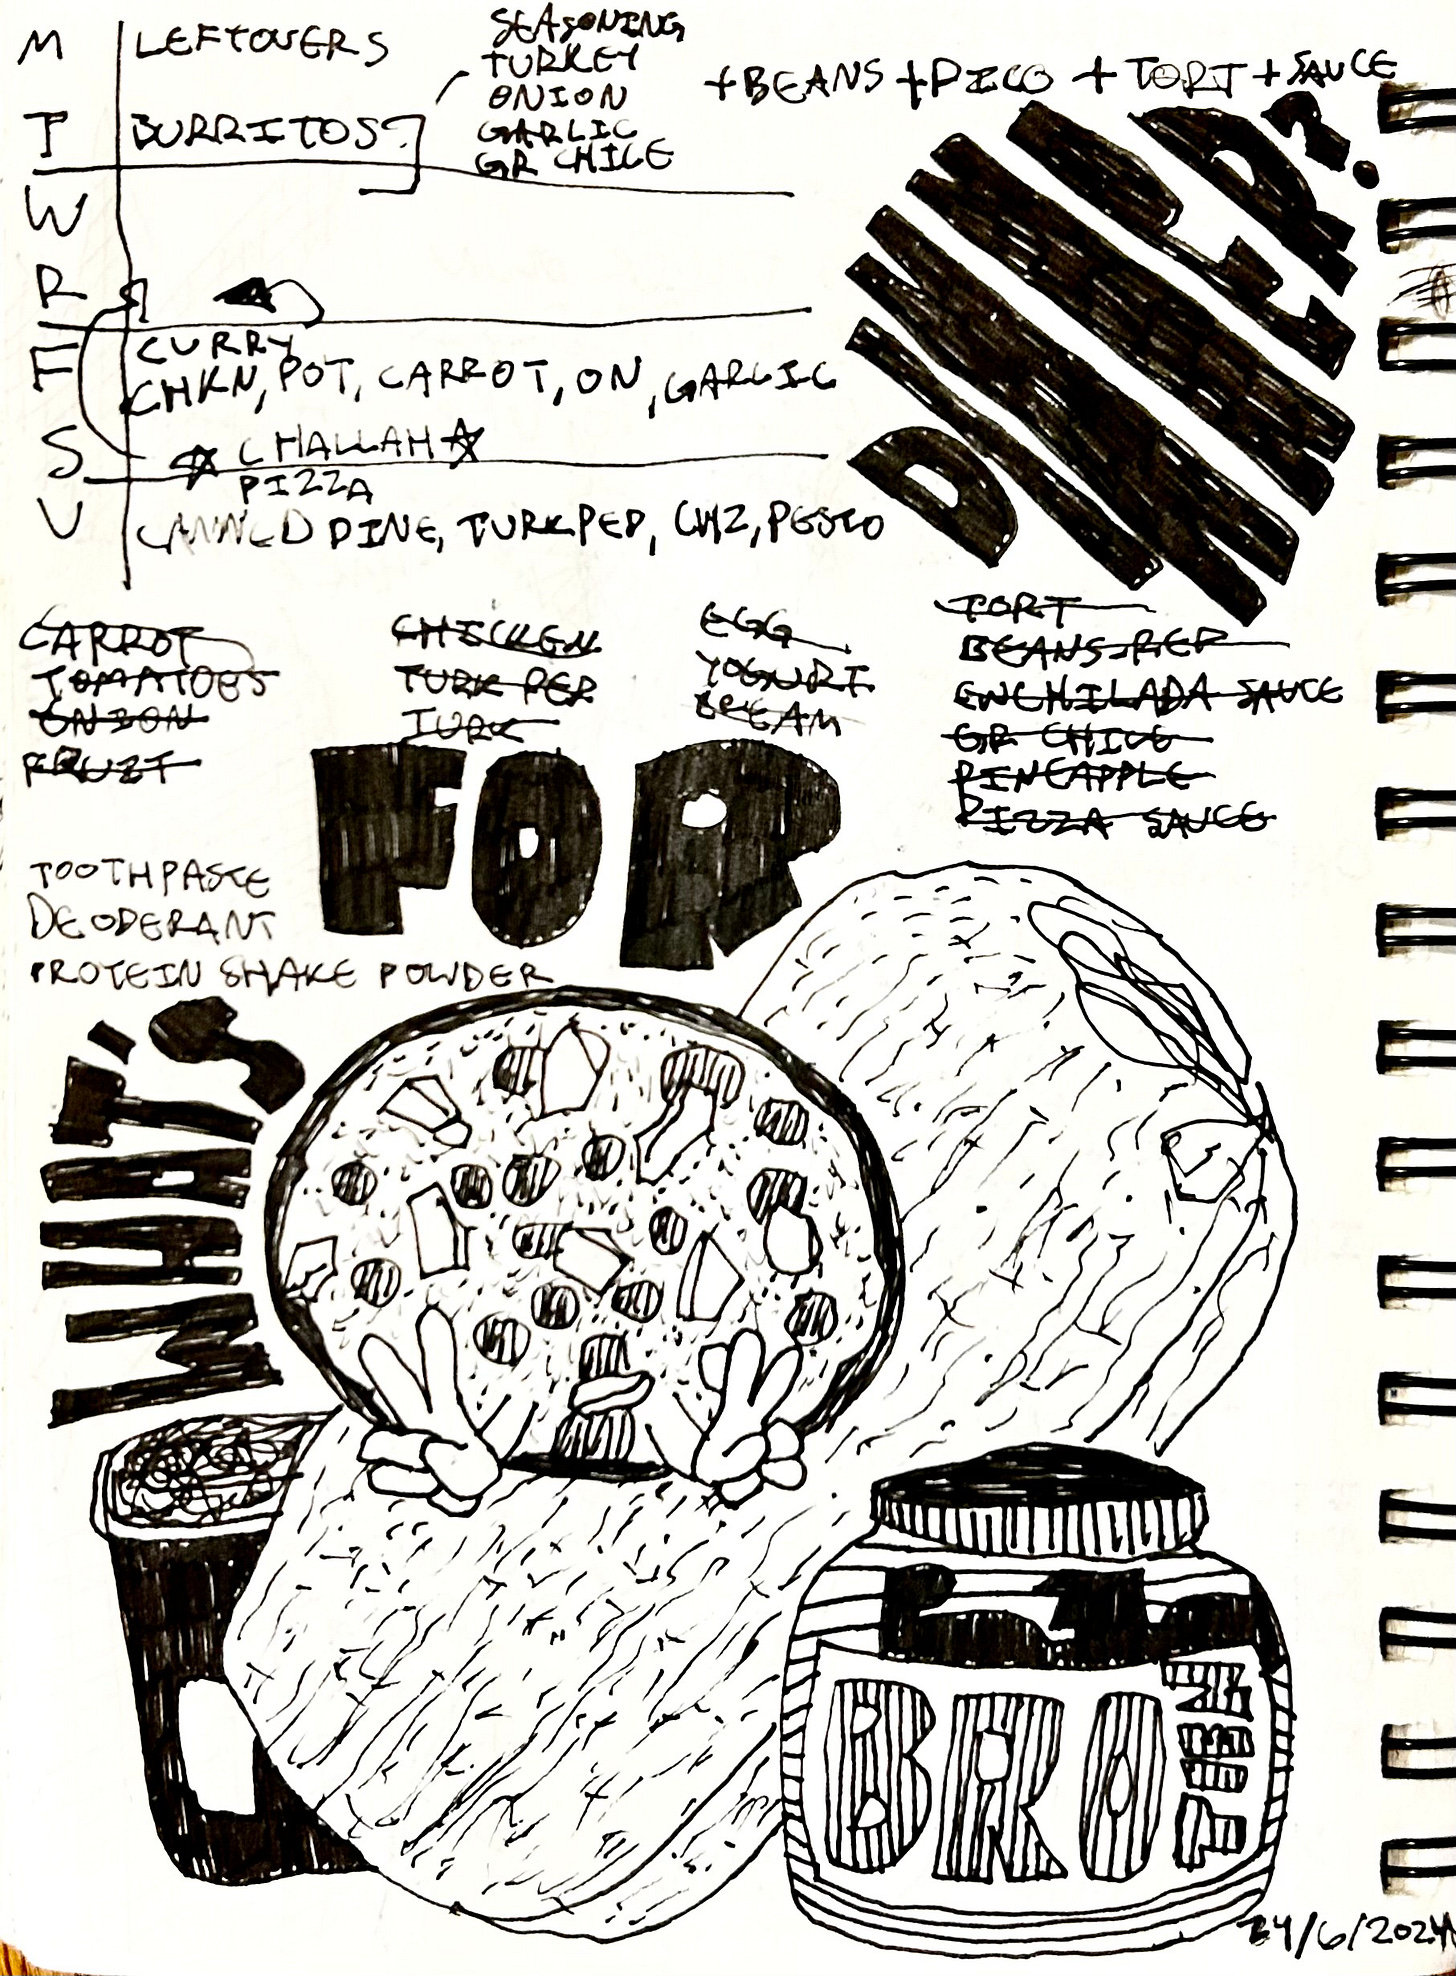 M LEFTOVERS
SEASONING
TURKEY
ONION
GARLIC
GR CHILE
+ BEANS + PICO + TORT + SAUCE
T BURRITOS
W
R
F CURRY
CHKN, POT, CARROT, ON, GARLIC
S CHALLAH
PIZZA
U CANNED PINE, TURK PEP, CHZ, PESTO
WHAT'S
FOR
DINNER?
CARROT
TOMATOES
ONION
FRUIT
CHICKEN
TURK PEP
TURK
EGG
YOGURT
CREAM
TORT
BEANS-REF
ENCHILADA SAUCE
GR CHILE
PINEAPPLE
PIZZA SAUCE
TOOTHPASTE
DEODERANT
PROTEIN SHAKE POWDER
BRO
TEIN
24/6/2024